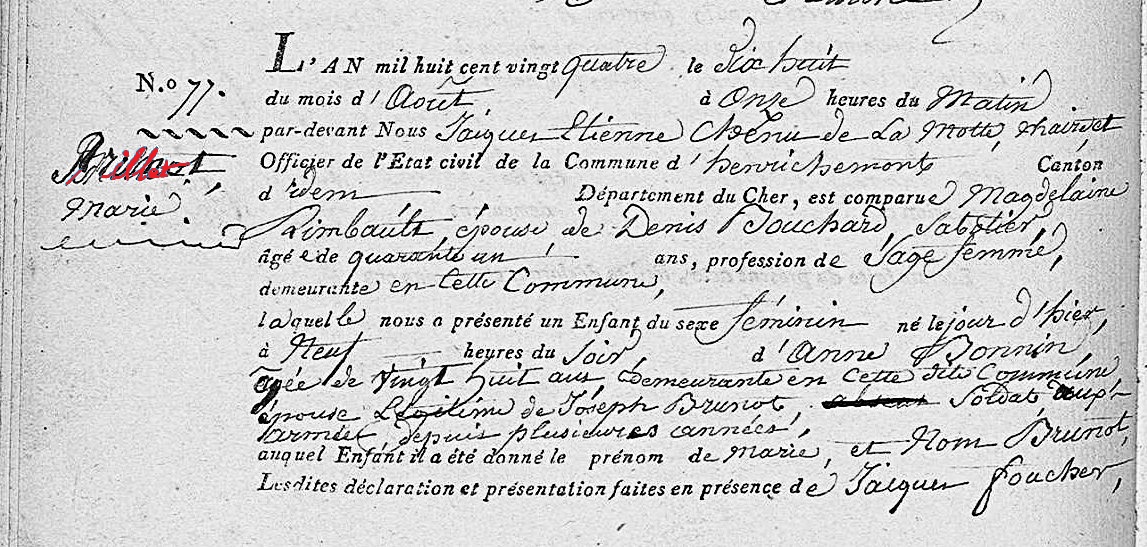 L'AN mil huit cent vingt quatre le dix huit
N.o 77.
du mois d'Août, à Onze heures du Matin
par-devant Nous Jacques Etienne Chénu de La Motte, Maire et
Officier de l'Etat civil de la Commune d'henrichemont Canton
Marie.
d'idem Département du Cher, est comparue Magdelaine
Rimbault, épouse de Denis Bouchard, Sabotier,
âgée de quarante un ans, profession de Sage femme,
demeurante en Cette Commune,
laquelle nous a présenté un Enfant du sexe féminin né le jour d'hier,
à Neuf heures du Soir, d'Anne Bonnin,
agée de vingt huit ans, demeurante en cette dite Commune
épouse Légitime de Joseph Brunot, Soldat aux
armées, depuis plusieures années,
auquel Enfant il a été donné le prénom de Marie, et Nom Brunot,
Lesdites déclaration et présentation faites en présence de Jacques foucher,